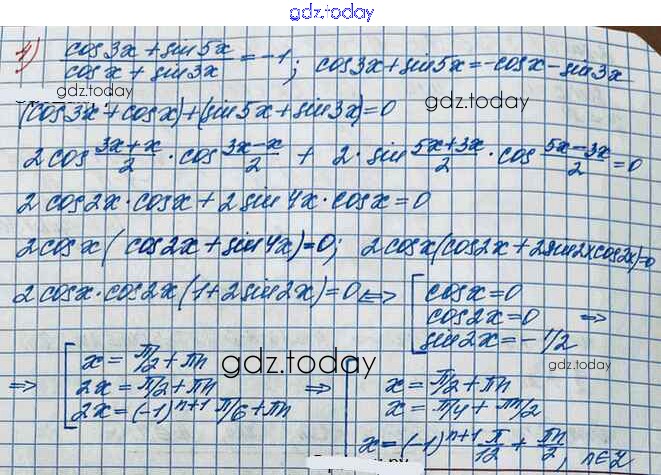 gdz.today
4) (cos3x + sin5x)/(cosx + sin3x) = -1; cos3x + sin5x = -cosx - sin3x
gdz.today
gdz.today
(cos3x + cosx) + (sin5x + sin3x) = 0
2cos (3x+x)/2 · cos (3x-x)/2 + 2·sin (5x+3x)/2 · cos (5x-3x)/2 = 0
2 cos2x·cosx + 2 sin4x·cosx = 0
2cosx(cos2x + sin4x) = 0; 2cosx(cos2x + 2sin2xcos2x) = 0
2cosx·cos2x(1+2sin2x) = 0 <=> [ cosx = 0
cos2x = 0 =>
sin2x = -1/2
gdz.today
gdz.today
=> [ x = π/2 + πn
2x = π/2 + πn
2x = (-1)^{n+1} π/6 + πn
=> [ x = π/2 + πn
x = π/4 + πn/2
x = (-1)^{n+1} π/12 + πn/2, n∈Z